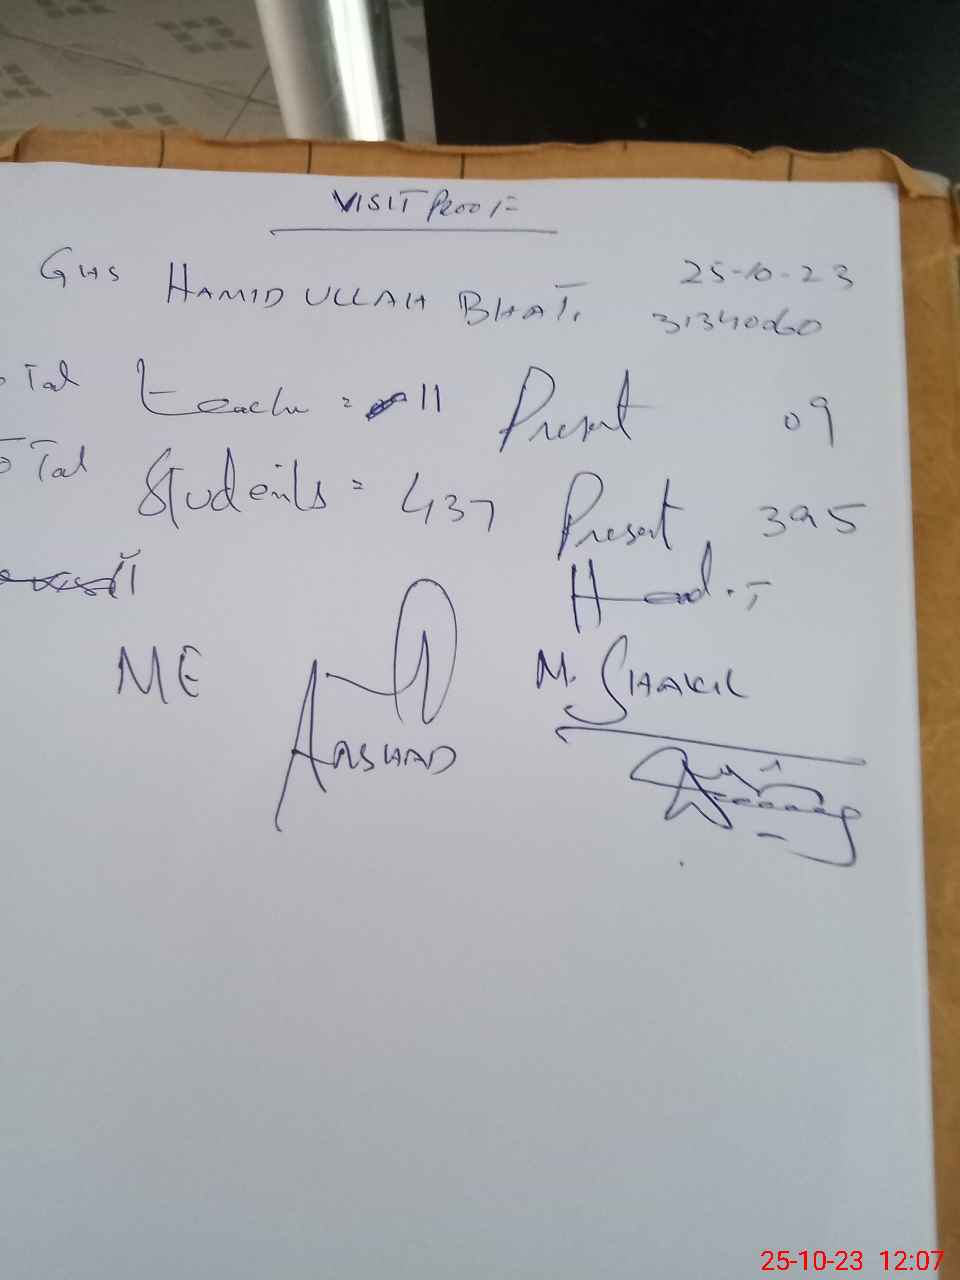 VISIT PROOF
GHS HAMID ULLAH BHATI 25-10-23
31340060
Total teacher = 11 Present 09
Total Students = 437 Present 395
Head.T
ME M. SHAKIL
ARSHAD
25-10-23 12:07